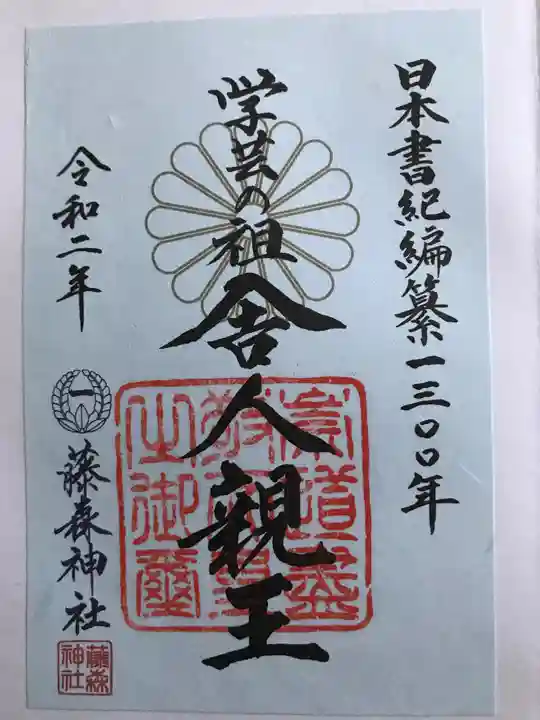 日本書紀編纂一三〇〇年
学芸の祖 舎人親王
崇道尽敬皇帝之御璽
令和二年
一
藤森神社
藤森神社